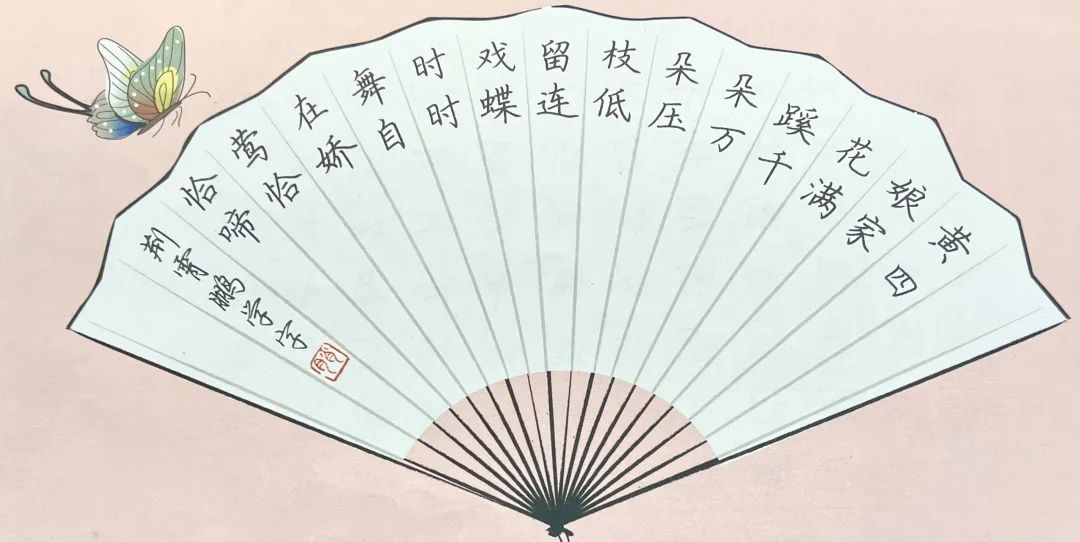 黄四
娘家
花满
蹊千
朵万
朵压
枝低
留连
戏蝶
时时
舞自
在娇
莺恰
恰啼
荆霄鹏学字